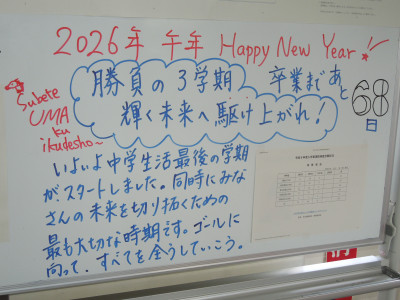 2026年 午年 Happy New Year!
Subete
UMA
ku
ikudesho~
勝負の3学期
輝く未来へ駆け上がれ!
卒業まであと
68
日
いよいよ中学生活最後の学期
がスタートしました。同時にみな
さんの未来を切り拓くための
最も大切な時期です。ゴールに
向って、すべてを全うしていこう。